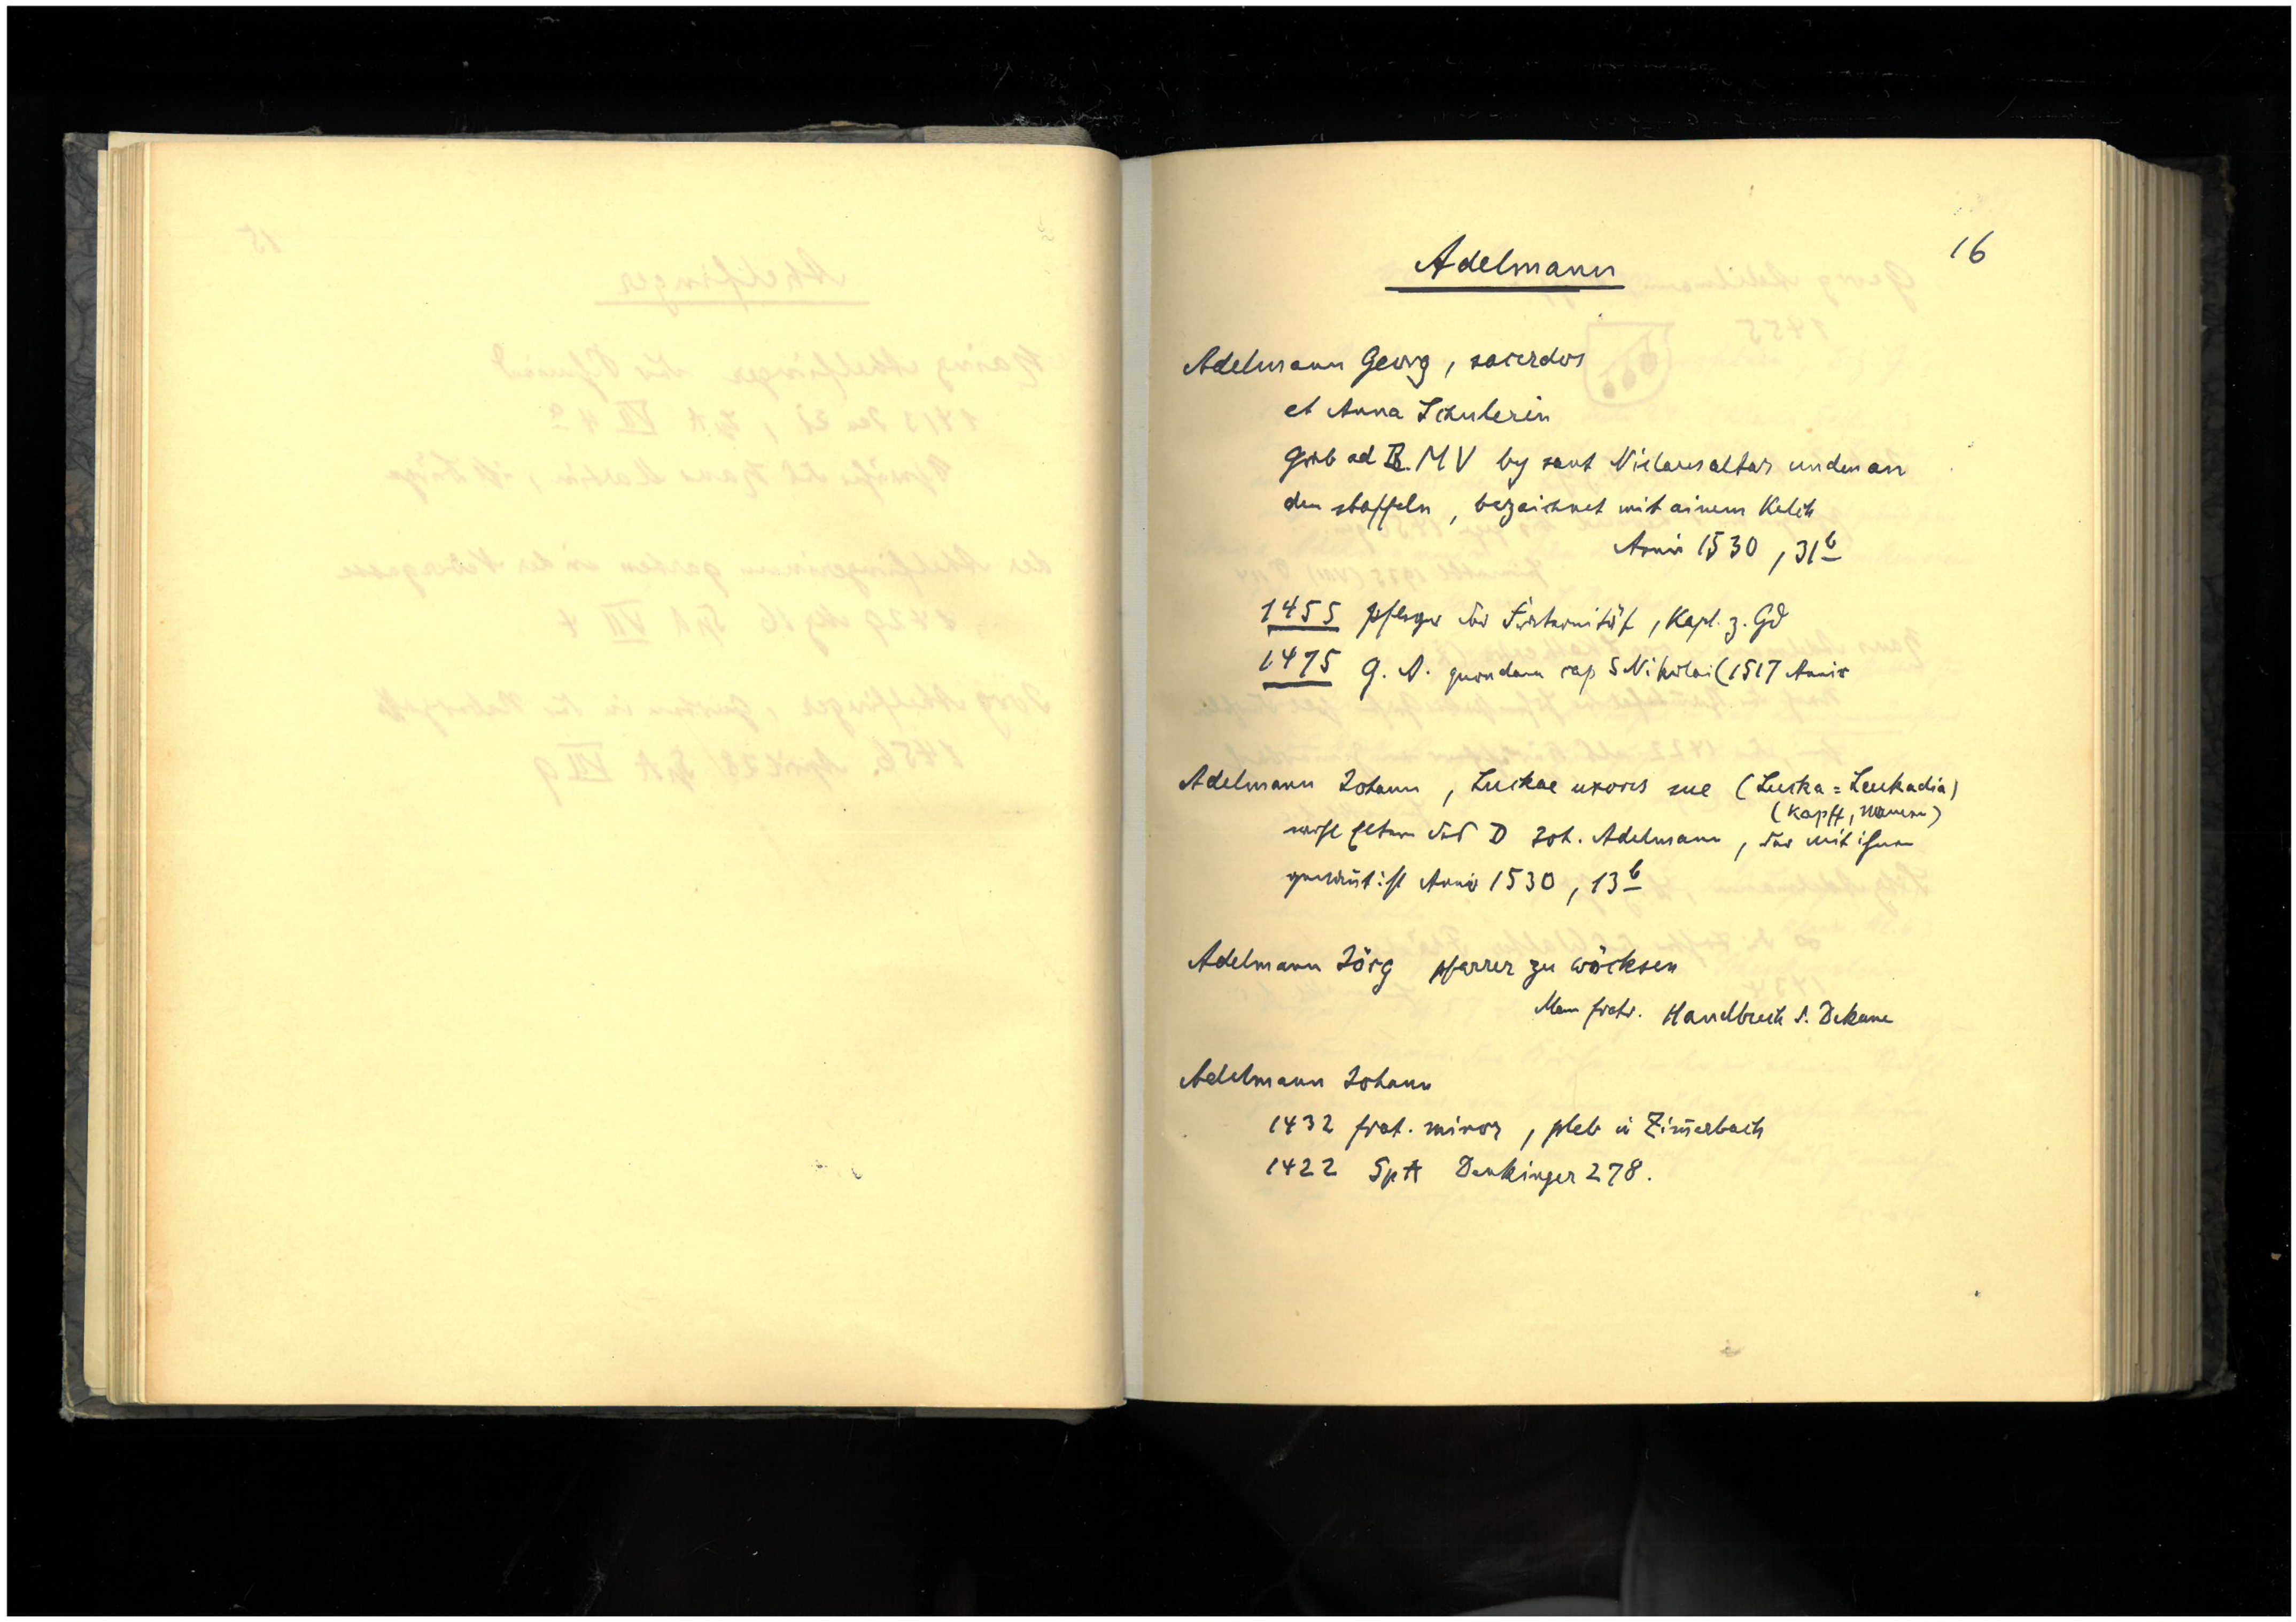 16
Adelmann
Adelmann Georg, sacerdos
et Anna Schulerin
Grab ad B. M V by sant Niclausaltar unden an
den staffeln, bezaichnet mit ainem Kelch
Anniv 1530, 31b
1455 Pfleger der Fraternität, Kapl. z. Gd
1475 G. A. quondam cap S Nikolai (1517 Anniv
Adelmann Johann, Luckae uxoris sue (Luska = Leukadia)
(Kapff, Namen)
wohl Eltern des D Joh. Adelmann, der mit ihnen
genannt ist Anniv 1530, 13b
Adelmann Jörg pfarrer zu wöcksen
Mem fratr. Handbuch d. Dekane
Adelmann Johann
1432 frat. minor, pleb in Zim̄erbach
1422 SpA Denkinger 278.